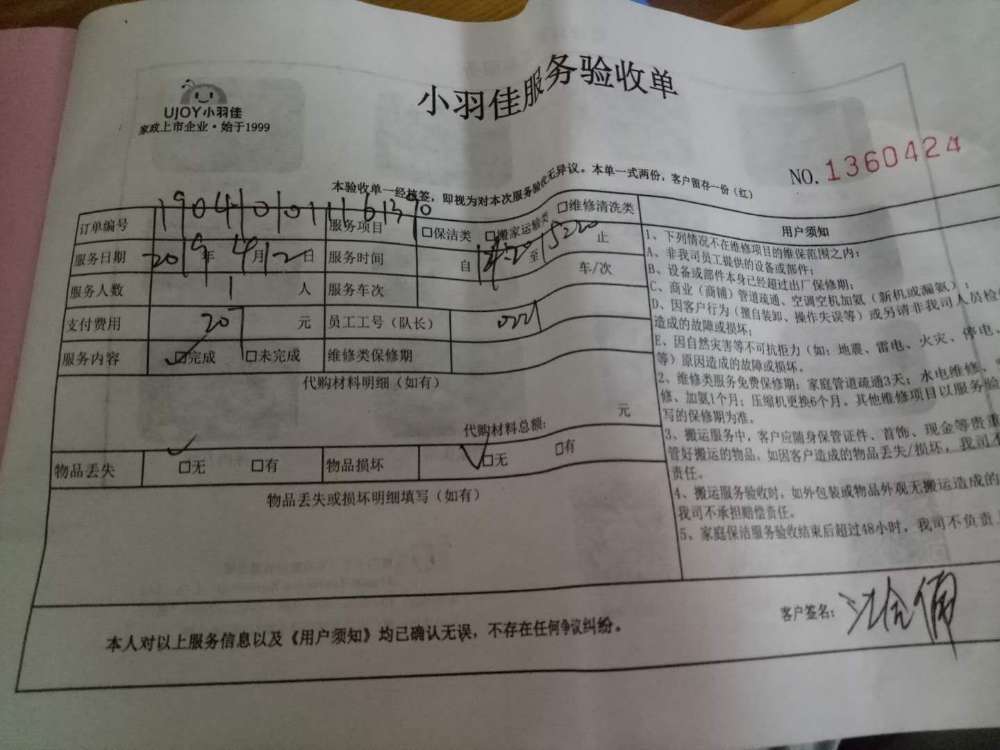 UJOY小羽佳
家政上市企业·始于1999
小羽佳服务验收单
NO.1360424
本验收单一经核签，即视为对本次服务验收无异议。本单一式两份，客户留存一份（红）
订单编号
服务项目 □保洁类 □搬家运输类 □维修清洗类
服务日期 2019年4月2日 服务时间 自 至 止
服务人数 1 人 服务车次 车/次
支付费用 207 元 员工工号（队长） 0221
服务内容 □完成 □未完成 维修类保修期
代购材料明细（如有）
代购材料总额： 元
物品丢失 □无 □有 物品损坏 □无 □有
物品丢失或损坏明细填写（如有）
用户须知
1、下列情况不在维修项目的维保范围之内：
A、非我司员工提供的设备或部件；
B、设备或部件本身已经超过出厂保修期；
C、商业（商铺）管道疏通、空调空机加氨（新机或漏氨）；
D、因客户行为（擅自装卸、操作失误等）或另请非我司人员检
造成的故障或损坏；
E、因自然灾害等不可抗拒力（如：地震、雷电、火灾、停电、
等）原因造成的故障或损坏。
2、维修类服务免费保修期：家庭管道疏通3天；水电维修、
修、加氨1个月；压缩机更换6个月。其他维修项目以服务验
写的保修期为准。
3、搬运服务中，客户应随身保管证件、首饰、现金等贵重
管好搬运的物品。如因客户造成的物品丢失/损坏，我司
责任。
4、搬运服务验收时，如外包装或物品外观无搬运造成的
我司不承担赔偿责任。
5、家庭保洁服务验收结束后超过48小时，我司不负责
本人对以上服务信息以及《用户须知》均已确认无误，不存在任何争议纠纷。
客户签名：